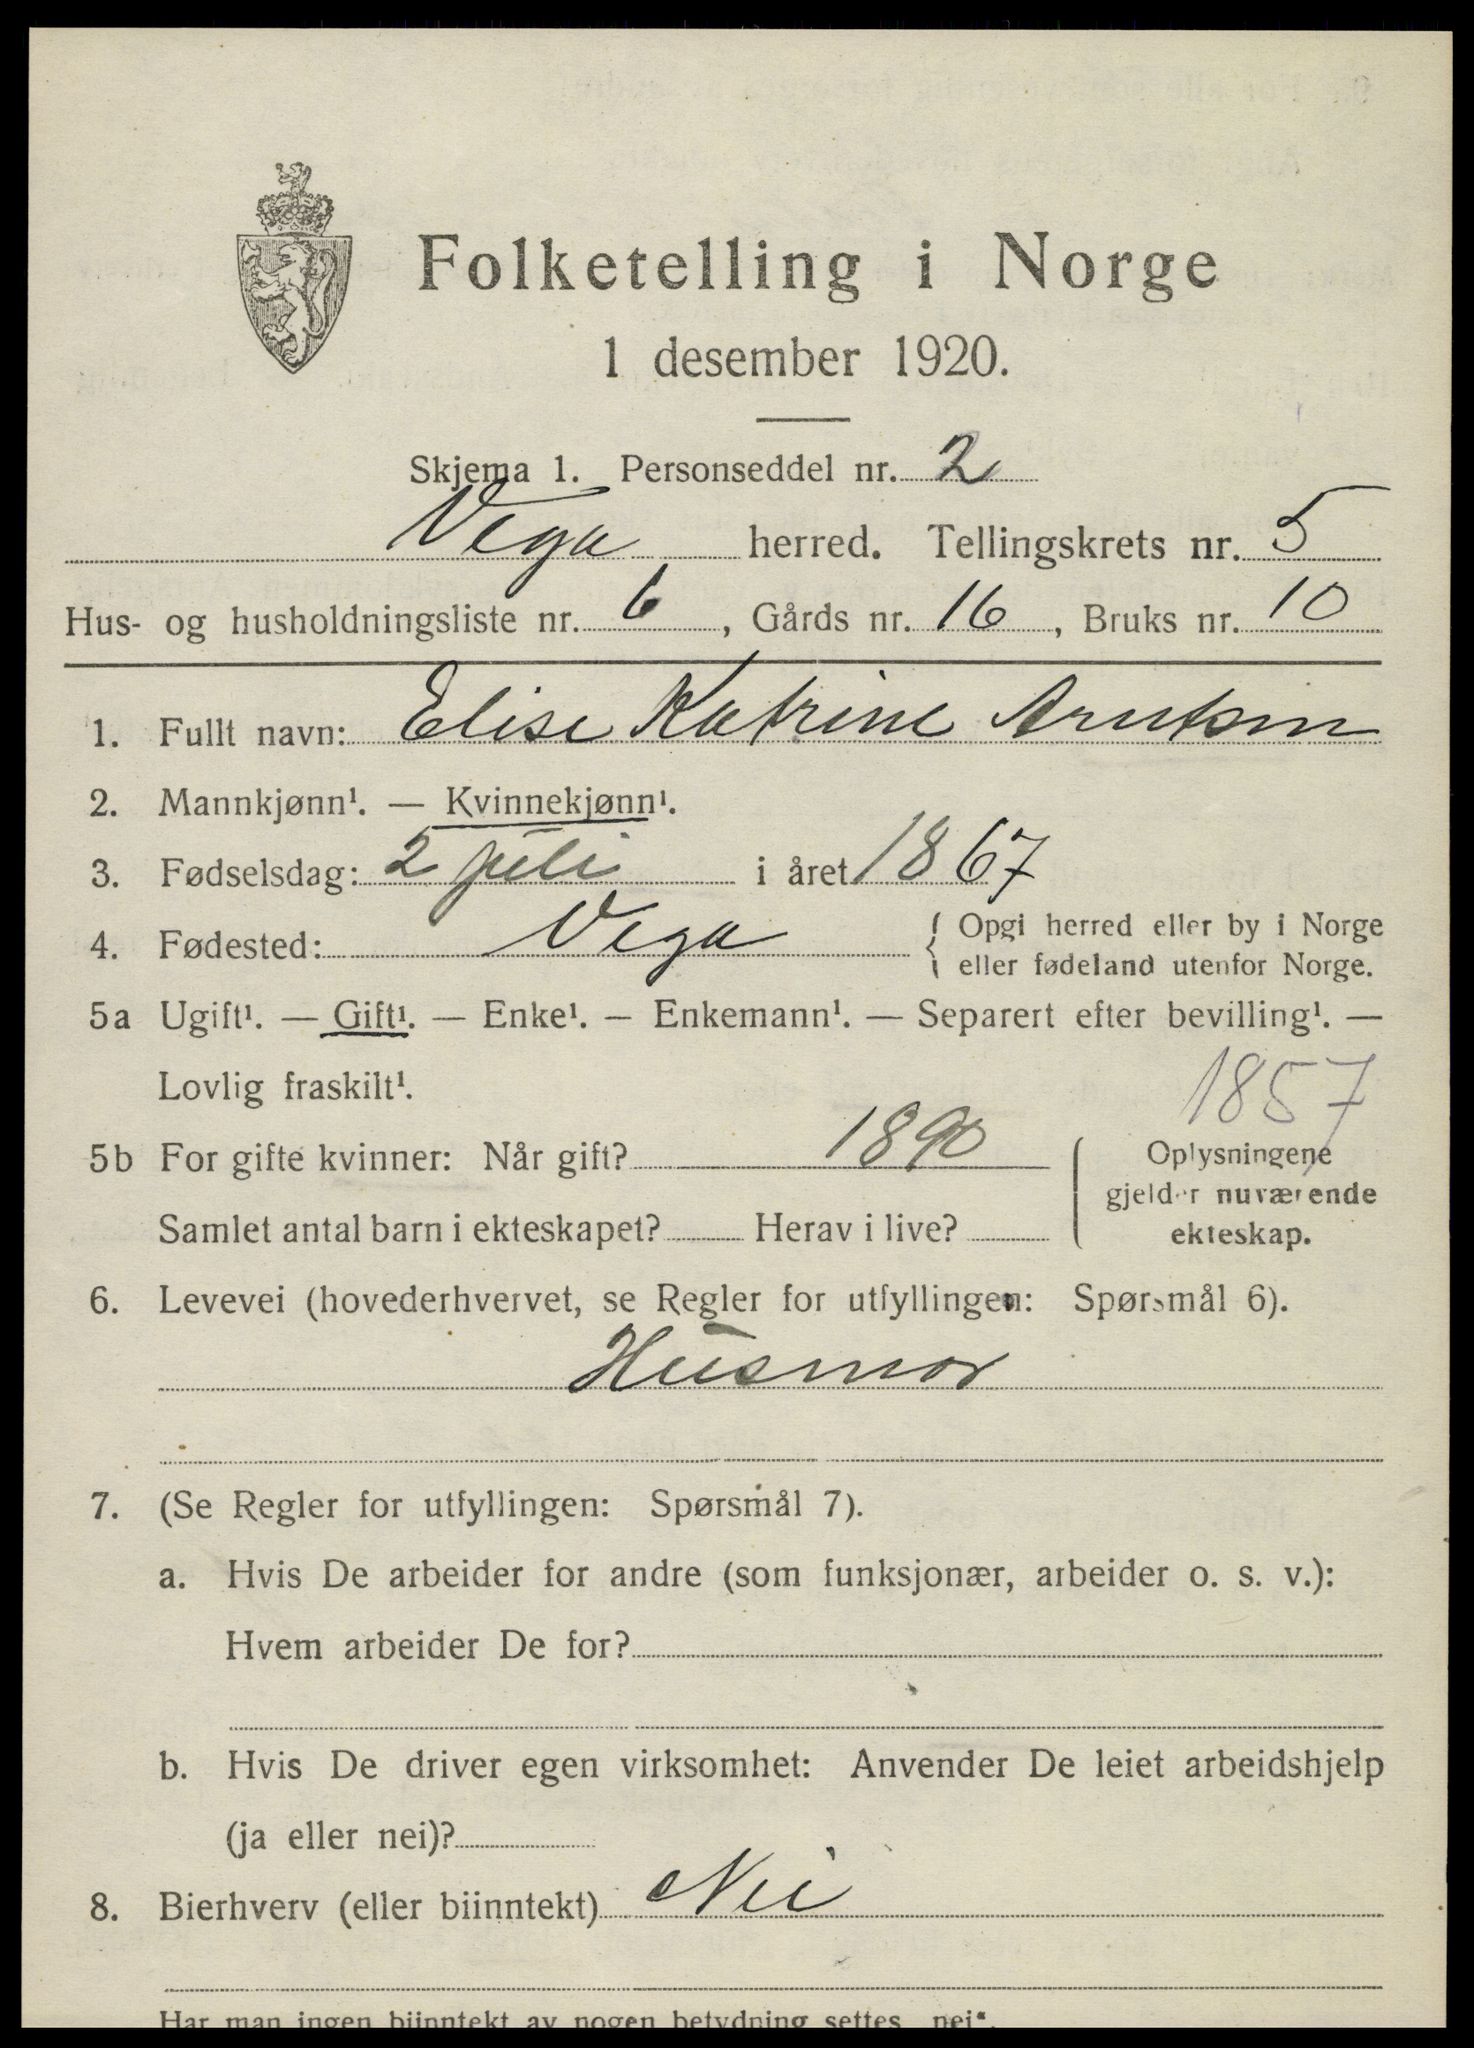 Folketelling i Norge
1 desember 1920.
Skjema 1. Personseddel nr. 2
Vega herred. Tellingskrets nr. 5
Hus- og husholdningsliste nr. 6, Gårds nr. 16, Bruks nr. 10
1. Fullt navn: Elise Katrine Arntsen
2. Mannkjønn¹. — Kvinnekjønn¹.
3. Fødselsdag: 2 juli i året 1867
4. Fødested: Vega { Opgi herred eller by i Norge
eller fødeland utenfor Norge.
5a Ugift¹. — Gift¹. — Enke¹. — Enkemann¹. — Separert efter bevilling¹. —
Lovlig fraskilt¹.
1857
5b For gifte kvinner: Når gift? 1890
Samlet antal barn i ekteskapet? Herav i live?
Oplysningene
gjelder nuværende
ekteskap.
6. Levevei (hovederhvervet, se Regler for utfyllingen: Spørsmål 6).
Husmor
7. (Se Regler for utfyllingen: Spørsmål 7).
a. Hvis De arbeider for andre (som funksjonær, arbeider o. s. v.):
Hvem arbeider De for?
b. Hvis De driver egen virksomhet: Anvender De leiet arbeidshjelp
(ja eller nei)?
8. Bierhverv (eller biinntekt) Nei
Har man ingen biinntekt av nogen betydning settes „nei“.